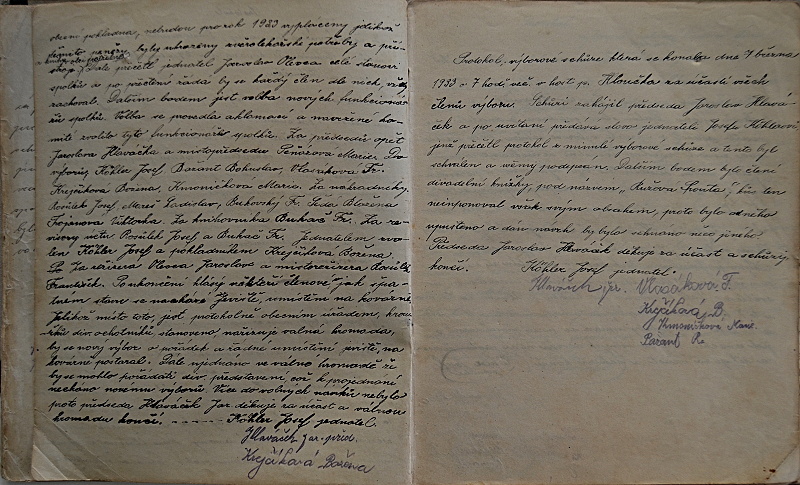 obecní pokladna, nebudou pro rok 1933 vypláceny jelikož
těmito penězy byly uhrazeny
Dále přečetl jednatel Jaroslav Olevca celé stanovi
spolků a po přečtení žádá by se každý člen dle nich
zachoval. Dalším bodem jest volba nových funkcioná-
řů spolků. Volba se provedla aklamací a navržené ho-
mité zvolila tyto funkcionáře spolků. Za předsedu opět
Jaroslava Hlaváčka a místopředsedu Peňázová Marie. Do
výboru, Köhler Josef Bažant Bohuslav, Vlasáková Fr.
Krejčíková Božena, Kmoníčková Marie. Za náhradníky
Kosůlek Josef Mareš Ladislav, Bukovský Fr. Blažena
Trojanova Viktorka. Za knihovníka Bukač Fr. Za re-
visory účtu Kosůlek Josef a Bukač Fr. Jednatelem zvo-
len Köhler Josef a pokladníkem Krejčíková Božena.
Za režisera Olevca Jaroslav a místorežisera Kosůlek
František. Po skončení hlásí někteří členové jak špa-
tném stavu se nachází Jeviště, umístěn na kovárně.
Jelikož místo toto, jest potvolně obecním úřadem, krou-
žku div. ochotníků stanoveno, nařizuje valná hromada,
by se nový výbor o pořádek a řádné umístění jeviště, na
kovárně postaral. Dále ujednáno ve valné hromadě že
by se mohlo pořádati div. představení, což k projednání
necháno novému výborů. Více do volných návrhů nebylo
proto předseda Hlaváček Jar. děkuje za účast a valnou
hromadu končí. Köhler Josef jednatel.
Hlaváček Jar. před.
Krejčíková Božena
Protokol, výborové schůze která se konala dne 7 března
1933 v 7 hodi več. v host p. Kloučka za účasti všech
členů výboru. Schůzi zahájil předseda Jaroslav Hlavá-
ček a po uvítání předává slovo jednateli Josefu Köhlerovi
jenž přečetl protokol z minulé výborové schůze a tento byl
schválen a všemy podepsán. Dalším bodem bylo čtení
divadelní knížky pod názvem „Růžova Pouta", kus ten
neimponoval však svým obsahem, proto bylo od něho
upuštěno a dán návrh by bylo sehnáno něco jiného.
Předseda Jaroslav Hlaváček děkuje za účast a schůzi
končí. Köhler Josef jednatel.
Hlaváček Jar. Vlasáková F.
Krejčíková B.
Kmoníčková Marie
Bažant B.